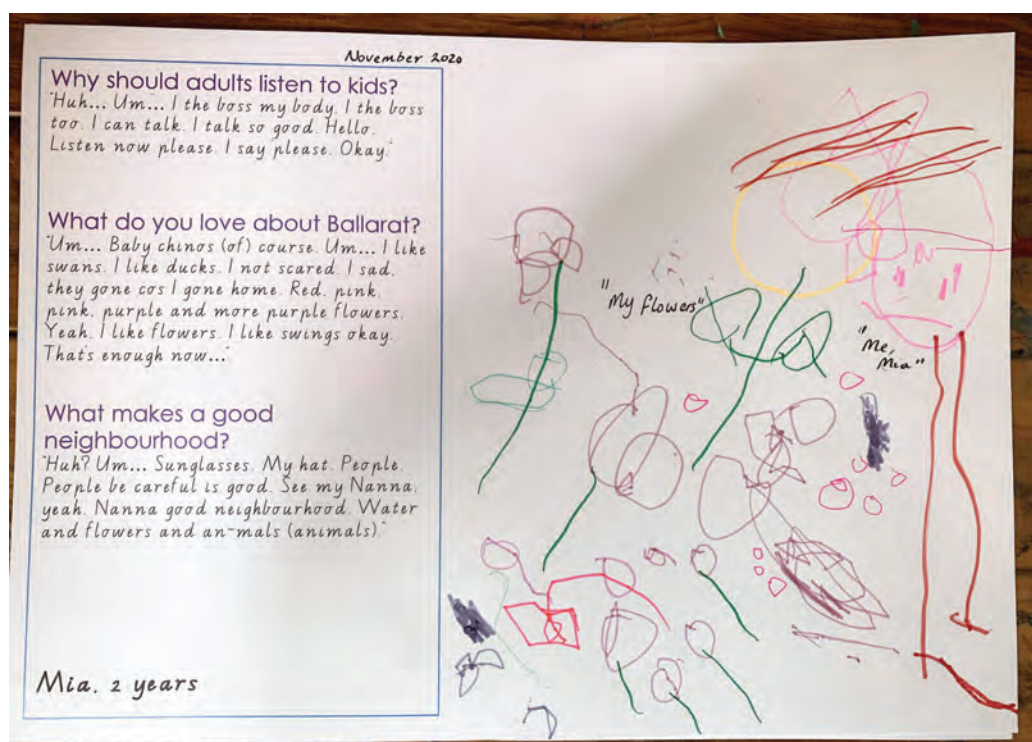 November 2020
Why should adults listen to kids?
"Huh... Um... I the boss my body. I the boss
too. I can talk. I talk so good. Hello.
Listen now please. I say please. Okay."
What do you love about Ballarat?
"Um... Baby chinos (of) course. Um... I like
swans. I like ducks. I not scared. I sad,
they gone cos I gone home. Red, pink,
pink, purple and more purple flowers.
Yeah. I like flowers. I like swings okay.
That's enough now..."
What makes a good
neighbourhood?
"Huh? Um... Sunglasses. My hat. People.
People be careful is good. See my Nanna,
yeah. Nanna good neighbourhood. Water
and flowers and an-mals (animals)."
Mia, 2 years
"My flowers"
"Me,
Mia"